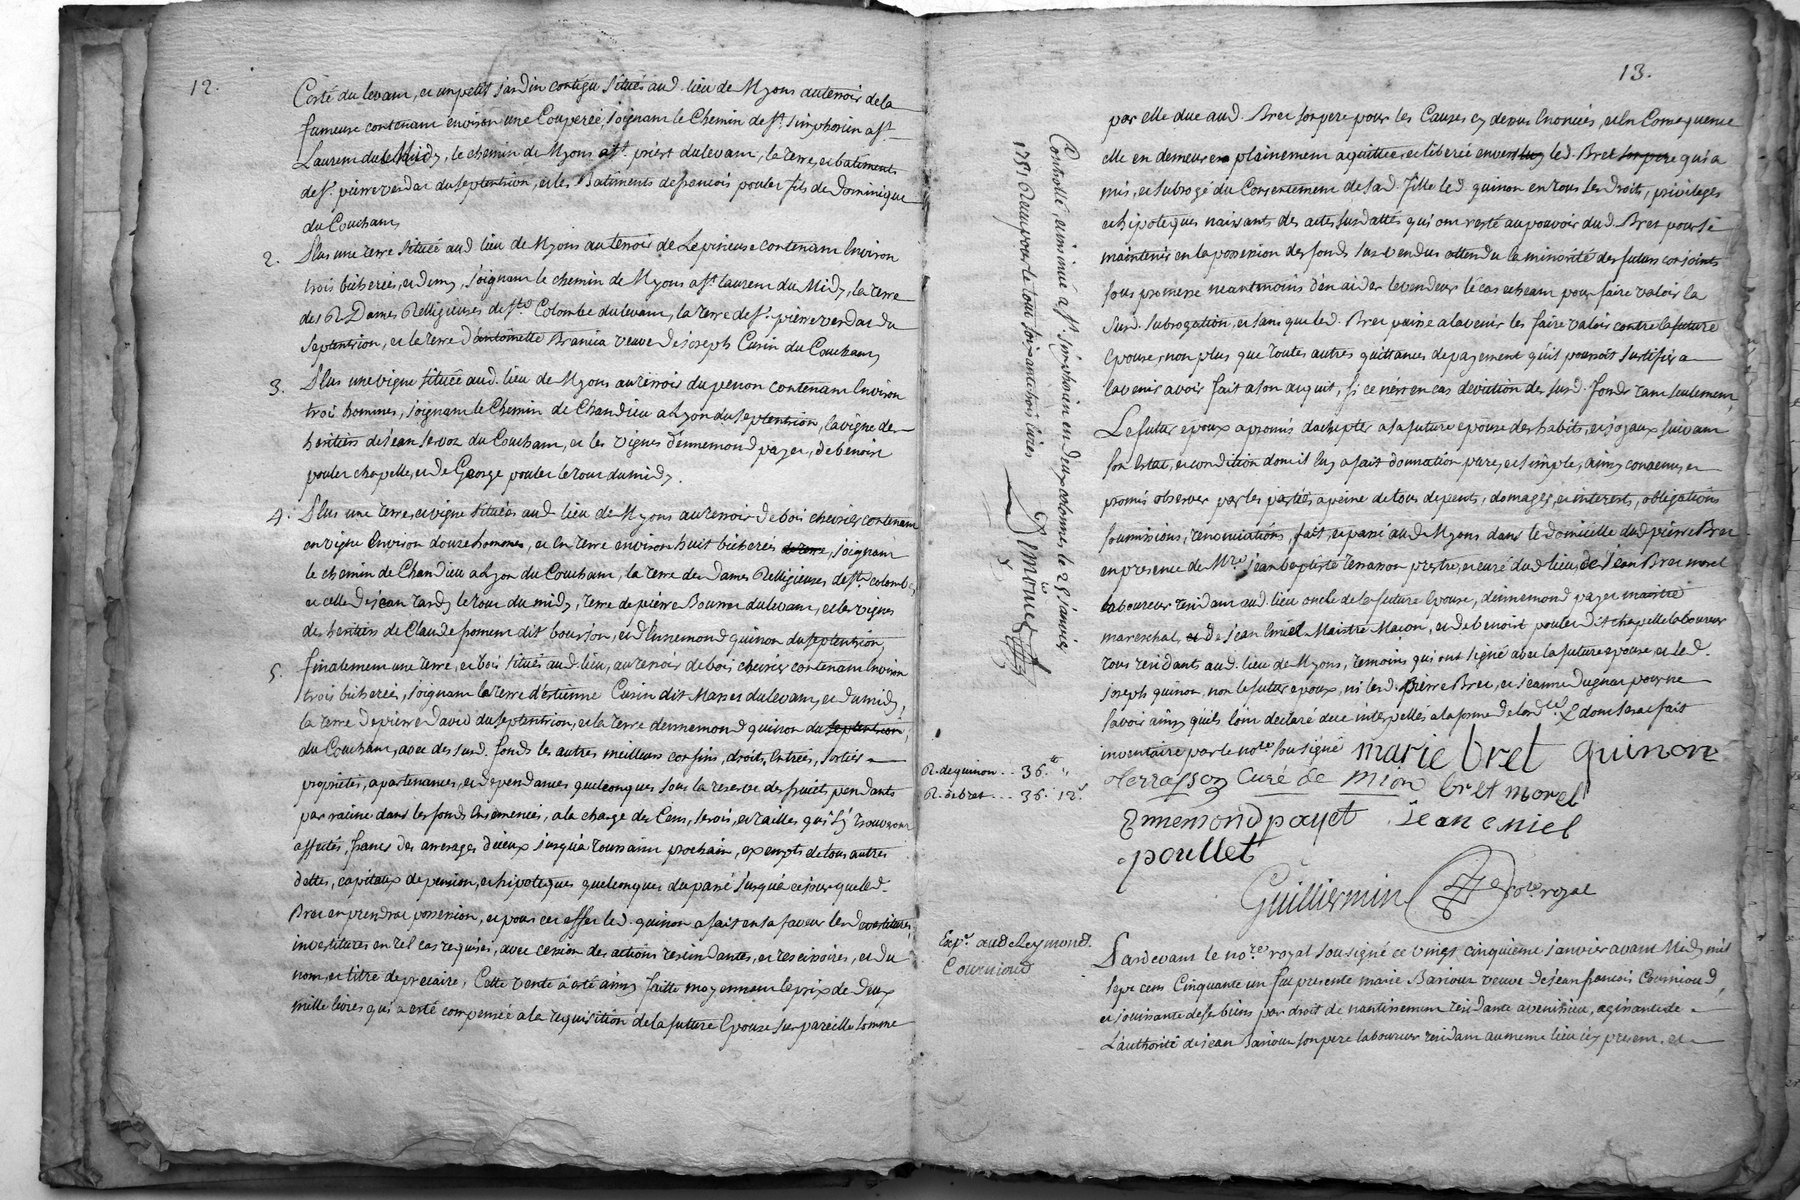 12.
Costé du levant, et un petit jardin contigu situés aud. lieu de Myons au terroir de la
fumeuse contenant environ une Couperée, joignant le Chemin de st. simphorien a st.
Laurent du Midy, le chemin de Myons a st. priest du levant, la terre, et batiments
de sr. pierre verdat du septentrion, et les Batiments de francois poulet fils de Dominique
du Couchant,
2. Plus une terre située aud. lieu de Myons au terroir de Lepineuse contenant Environ
trois bicherées, et demy, joignant le chemin de Myons a st. laurent du Midy, la terre
des R. Dames Relligieuses de ste. Colombe du levant, la terre de sr. pierre verdat du
septentrion, et la terre d'antoinette veuve de joseph Cusin du Couchant,
3. Plus une vigne située aud. lieu de Myons au terroir du peron contenant Environ
trois hommes, joignant le Chemin de Chandieu a Lyon du septentrion, la vigne des
heritiers de jean servoz du Couchant, et les vignes d'ennemond payet, de benoist
poulet chapelle, et de George poulet le tout du midy.
4. Plus une terre, et vigne situées aud. lieu de Myons au terroir de bois chevrier contenant
en vigne Environ douze hommes, et En terre environ huit bicherées, joignant
le chemin de Chandieu a Lyon du Couchant, la terre des Dames Relligieuses de ste. colombe
et celle de jean tardy le tout du midy, terre de pierre du levant, et les vignes
des heritiers de Claude foment dit bourjon, et d'Ennemond quinon du septentrion,
5. finalement une terre, et bois situés aud. lieu, au terroir de bois chevrier contenant Environ
trois bicherées, joignant la terre d'estienne Cusin dit du levant, et du midy,
la terre de pierre David du septentrion, et la terre dennemond quinon
du Couchant, avec desusd. fonds les autres meilleurs confins, droits, Entrées, sorties
proprietés, apartenances, et dependances quelconques sous la reserve des fruits pendants
par racine dans les fonds Ensemencés, a la charge des Cens, servis, et tailles qui s'y trouveront
affectés, francs des arrerages d'iceux jusqu'a toussaint prochain, exempts de tous autres
dettes, capitaux de pension, et hipoteques quelconques du passé jusqu'a ce jour que led.
Bret en prendra possession, et pour cet effet led. quinon a fait en sa faveur les devestitures,
investitures en tel cas requises, avec cession des actions rescindantes, et rescisoires, et du
nom, et titre de precaire, Cette vente a eté ainsy faitte moyennant le prix de deux
mille livres qui a esté compensée a la requisition de la future Epouse sur pareille somme
13.
par elle due aud. Bret son pere pour les Causes cy dessus Enoncées, et En Consequence
elle en demeure plainement aquittée, et liberée envers led. Bret qui a
mis, et subrogé du Consentement de sad. fille led. quinon en tous ses droits, privileges
et hipoteques naissant des actes susdattés qui ont resté au pouvoir dud. Bret pour se
maintenir en la possession des fonds sus vendus attendu la minorité des futurs conjoints
sous promesse neantmoins d'en aider le vendeur le cas echeant pour faire valoir la
susd. subrogation, et sans que led. Bret puisse a l'avenir les faire valoir contre la future
epouse, non plus que toutes autres quittances de payement qu'il pourroit justifier a
l'avenir avoir fait a son aquit, si ce n'est en cas d'eviction desusd. fonds tant seulement,
Le futur epoux a promis d'acheptes a sa future epouse des habits, et joyaux suivant
son Estat, et condition dont il luy a fait donnation pure, et simple, ainsy convenu, et
promis observer par les parties a peine de tous depents, domages, et interests, obligations
soumissions, renonciations, fait, et passé aud. Myons dans le domicille dud. pierre Bret
en presence de Mre. jean baptiste terrasson prestre, et curé dud. lieu, de jean Bret morel
laboureur residant aud. lieu oncle de la future Epouse, dennemond payet maistre
mareschal, de jean Emiel Maistre Macon, et de benoist poulet dit chapelle laboureur
tous residants aud. lieu de Myons, temoins qui ont signé avec la future epouse, et led.
joseph quinon, non le futur epoux, ni lesd. pierre Bret, et jeanne Dugnat pour ne
savoir ainsy qu'ils l'ont declaré de ce interpellés a la forme de l'ordce. Et dont sera fait
inventaire par le nore. soussigné marie bret quinon
Terrasson Curé de mion bret morel
Ennemond payet jean emiel
poullet
Guilliermin nore. royal
Controllé, et insinué a st. simphorien en deux colomnes le 25 janvier
1751 Reçu pour le tout soixante trois livres
R. de quinon .. 36.
R. de bret ... 36. 12.
Expé. aud. Leymond.
Courtioud
Pardevant le nore. royal soussigné ce vingt cinquieme janvier avant Midy mil
sept cens Cinquante un fut presente marie Barioux veuve de jean francois Courtioud,
et jouissante de ses biens par droit de nantissement residante a venissieu, agissante de
L'authorité de jean Barioux son pere laboureur residant au meme lieu icy present, et